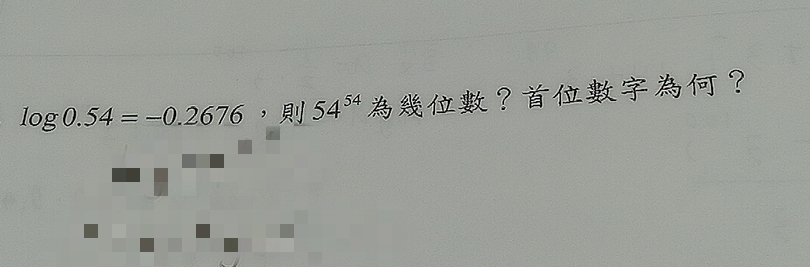 log 0.54 = −0.2676，則 54⁵⁴ 為幾位數？首位數字為何？